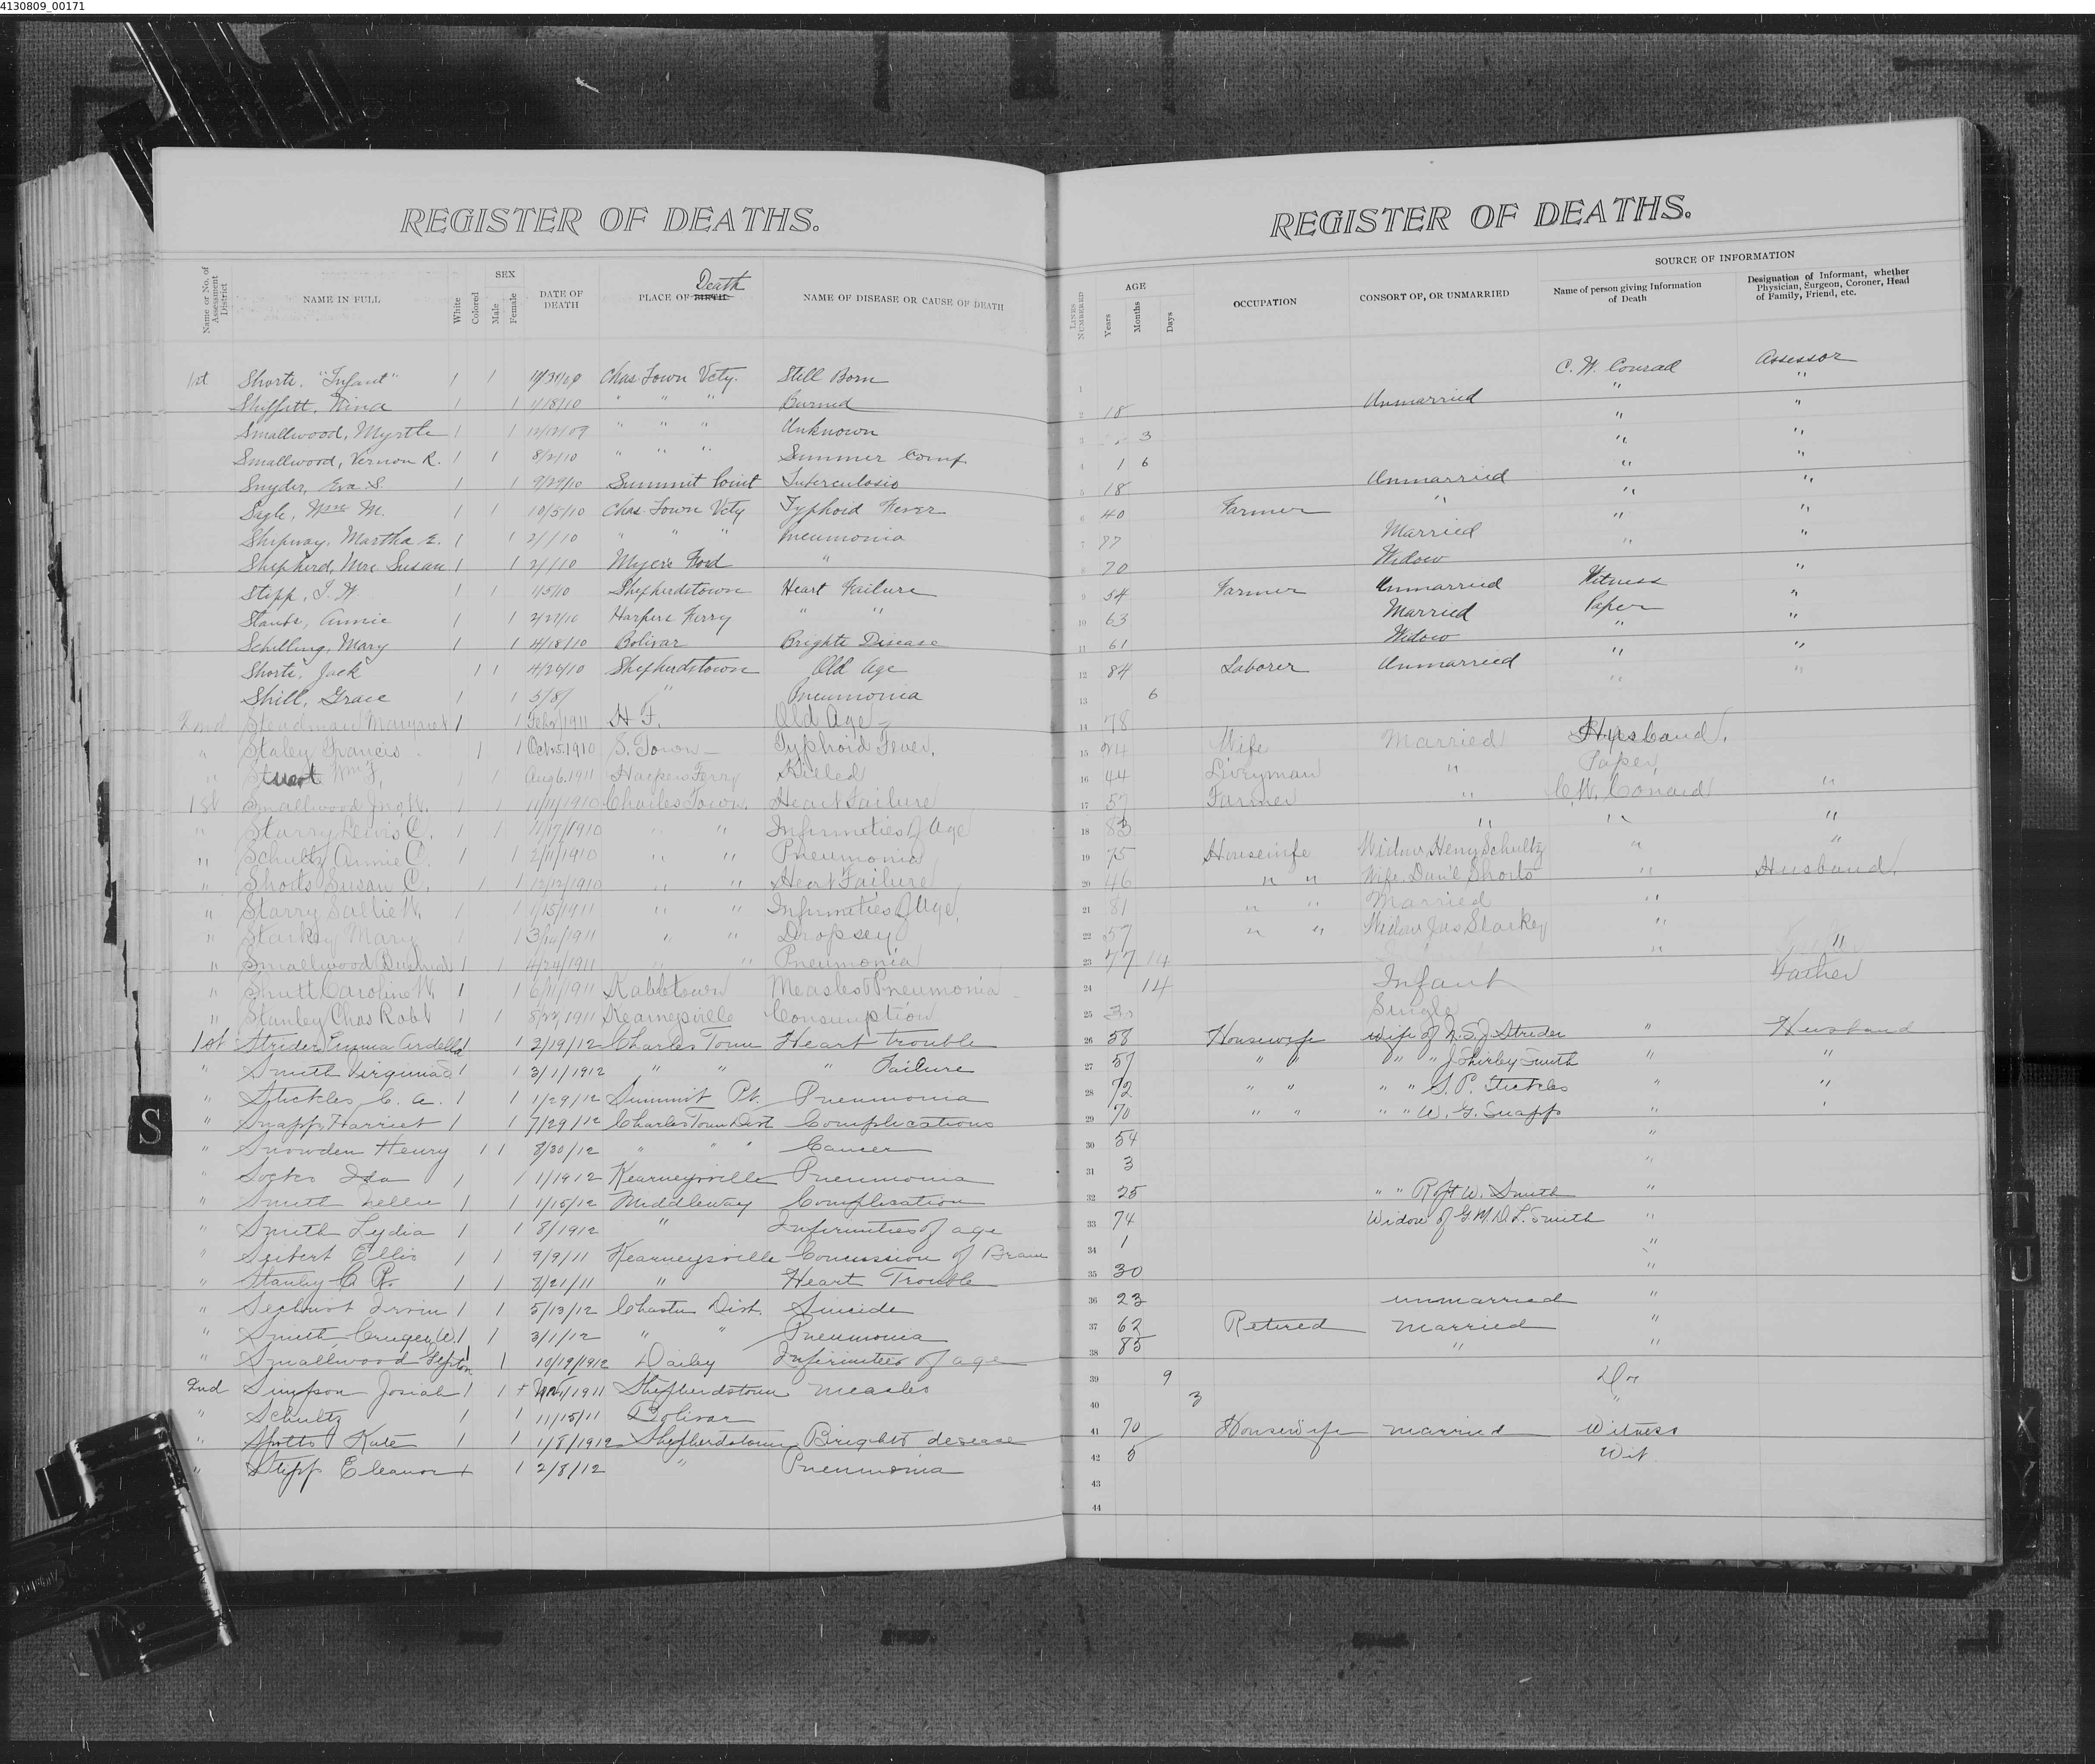 4130809_00171
REGISTER OF DEATHS.
Name or No. of Assessment District
NAME IN FULL
White
Colored
SEX
Male
Female
DATE OF DEATH
Death
PLACE OF BIRTH
NAME OF DISEASE OR CAUSE OF DEATH
1st Shorts, "Infant" 1 1 Chas Town Vcty. Still Born
Shiffett, Nina 1 1 1/18/10 " " " Burned
Smallwood, Myrtle 1 1 12/12/09 " " " Unknown
Smallwood, Vernon R. 1 1 8/2/10 " " " Summer Comp.
Snyder, Eva S. 1 1 9/29/10 Summit Point Tuberculosis
Sagle, Wm M. 1 1 10/5/10 Chas. Town Vcty Typhoid Fever
Shipway, Martha E. 1 1 2/1/10 " " " Pneumonia
Shepherd, Mrs. Susan 1 1 2/1/10 Myers Ford "
Stipp, J. W 1 1 1/5/10 Shepherdstown Heart Failure
Staubs, Annie 1 1 2/27/10 Harpers Ferry " "
Schilling, Mary 1 1 4/18/10 Bolivar Brights Disease
Shorts, Jack 1 1 4/26/10 Shepherdstown Old Age
Shill, Grace 1 1 5/8/ " Pneumonia
2nd Steadman Margaret 1 1 1911 H F. Old Age
" Staley Francis 1 1 Oct 25 1910 S. Town Typhoid Fever.
" Stuart Wm F. 1 1 Aug 6 1911 Harpers Ferry Killed
1st Smallwood Jno W. 1 1 11/11/1910 Charles Town. Heart Failure
" Starry Lewis C. 1 1 11/17/1910 " " Infirmeties of Age
" Schultz Annie C. 1 1 2/11/1910 " " Pneumonia
" Shorts Susan C. 1 1 12/12/1910 " " Heart Failure
" Starry Sallie W. 1 1 1/15/1911 " " Infirmeties of Age.
" Starkey Mary 1 1 3/14/1911 " " Dropsey
" Smallwood 1 1 4/24/1911 " " Pneumonia
" Shutt Caroline W. 1 1 6/11/1911 Kabletown Measles & Pneumonia
" Stanley Chas Robt 1 1 8/22/1911 Kearneysville Consumption
1st Strider Emma Ardella 1 1 2/19/12 Charles Town Heart trouble
" Smith Virginia 1 1 3/1/1912 " " " Failure
" Stickles C. A. 1 1 1/29/12 Summit Pt. Pneumonia
" Snapp, Harriet 1 1 7/29/12 Charles Town Dist Complications
" Snowden Henry 1 1 8/30/12 " " " Cancer
" Socks Ida 1 1 1/1912 Kearneysville Pneumonia
" Smith Nellie 1 1 1/15/12 Middleway Complication
" Smith Lydia 1 1 8/1912 " Infirmities of age
" Seibert Ellis 1 1 9/9/11 Kearneysville Concussion of Brain
" Stanley C R. 1 1 8/21/11 " Heart Trouble
" Sechrist Irvin 1 1 5/13/12 Chastn Dist. Suicide
" Smith W. 1 1 3/1/12 " " Pneumonia
" Smallwood 1 1 10/19/1912 Dailey Infirmities of age
2nd Simpson Josiah 1 1 + 1911 Shepherdstown measles
" Schultz 1 1 11/15/11 Bolivar
" Spotts Kate 1 1 1/8/1912 Shepherdstown Brights desease
" Stipp Eleanor + 1 2/8/12 " Pneumonia
S
REGISTER OF DEATHS.
LINES NUMBERED
AGE
Years
Months
Days
OCCUPATION
CONSORT OF, OR UNMARRIED
SOURCE OF INFORMATION
Name of person giving Information of Death
Designation of Informant, whether Physician, Surgeon, Coroner, Head of Family, Friend, etc.
1 C. W. Conrad Assessor
2 18 Unmarried " "
3 3 " "
4 1 6 " "
5 18 Unmarried " "
6 40 Farmer " " "
7 87 Married " "
8 70 Widow " "
9 54 Farmer Unmarried Witness "
10 63 Married Paper "
11 61 Widow " "
12 84 Laborer Unmarried " "
13 6 " "
14 78
15 24 Wife Married Husband.
16 44 Liveryman " Paper
17 57 Farmer " C. W. Conard "
18 83 " " "
19 75 Housewife Widow Henry Schultz " "
20 46 " " Wife Dan'l Shorts " Husband.
21 81 " " Married "
22 57 " " Widow Jas Starkey "
23 77 14 " "
24 14 Infant Father
25 30 Single
26 58 Housewife Wife of N. S. J. Strider " Husband
27 57 " " " " J. Shirley Smith " "
28 72 " " " " S. P. Stickles " "
29 70 " " " " W. G. Snapp " "
30 54 "
31 3 "
32 25 " " Robt W. Smith "
33 74 Widow of G. M. D. L. Smith "
34 1 "
35 30 "
36 23 unmarried "
37 62 Retired Married "
38 85 " "
39 9 Dr
40 3 "
41 70 Housewife married Witness
42 5 Wit
43
44
T
U
X
Y
Z